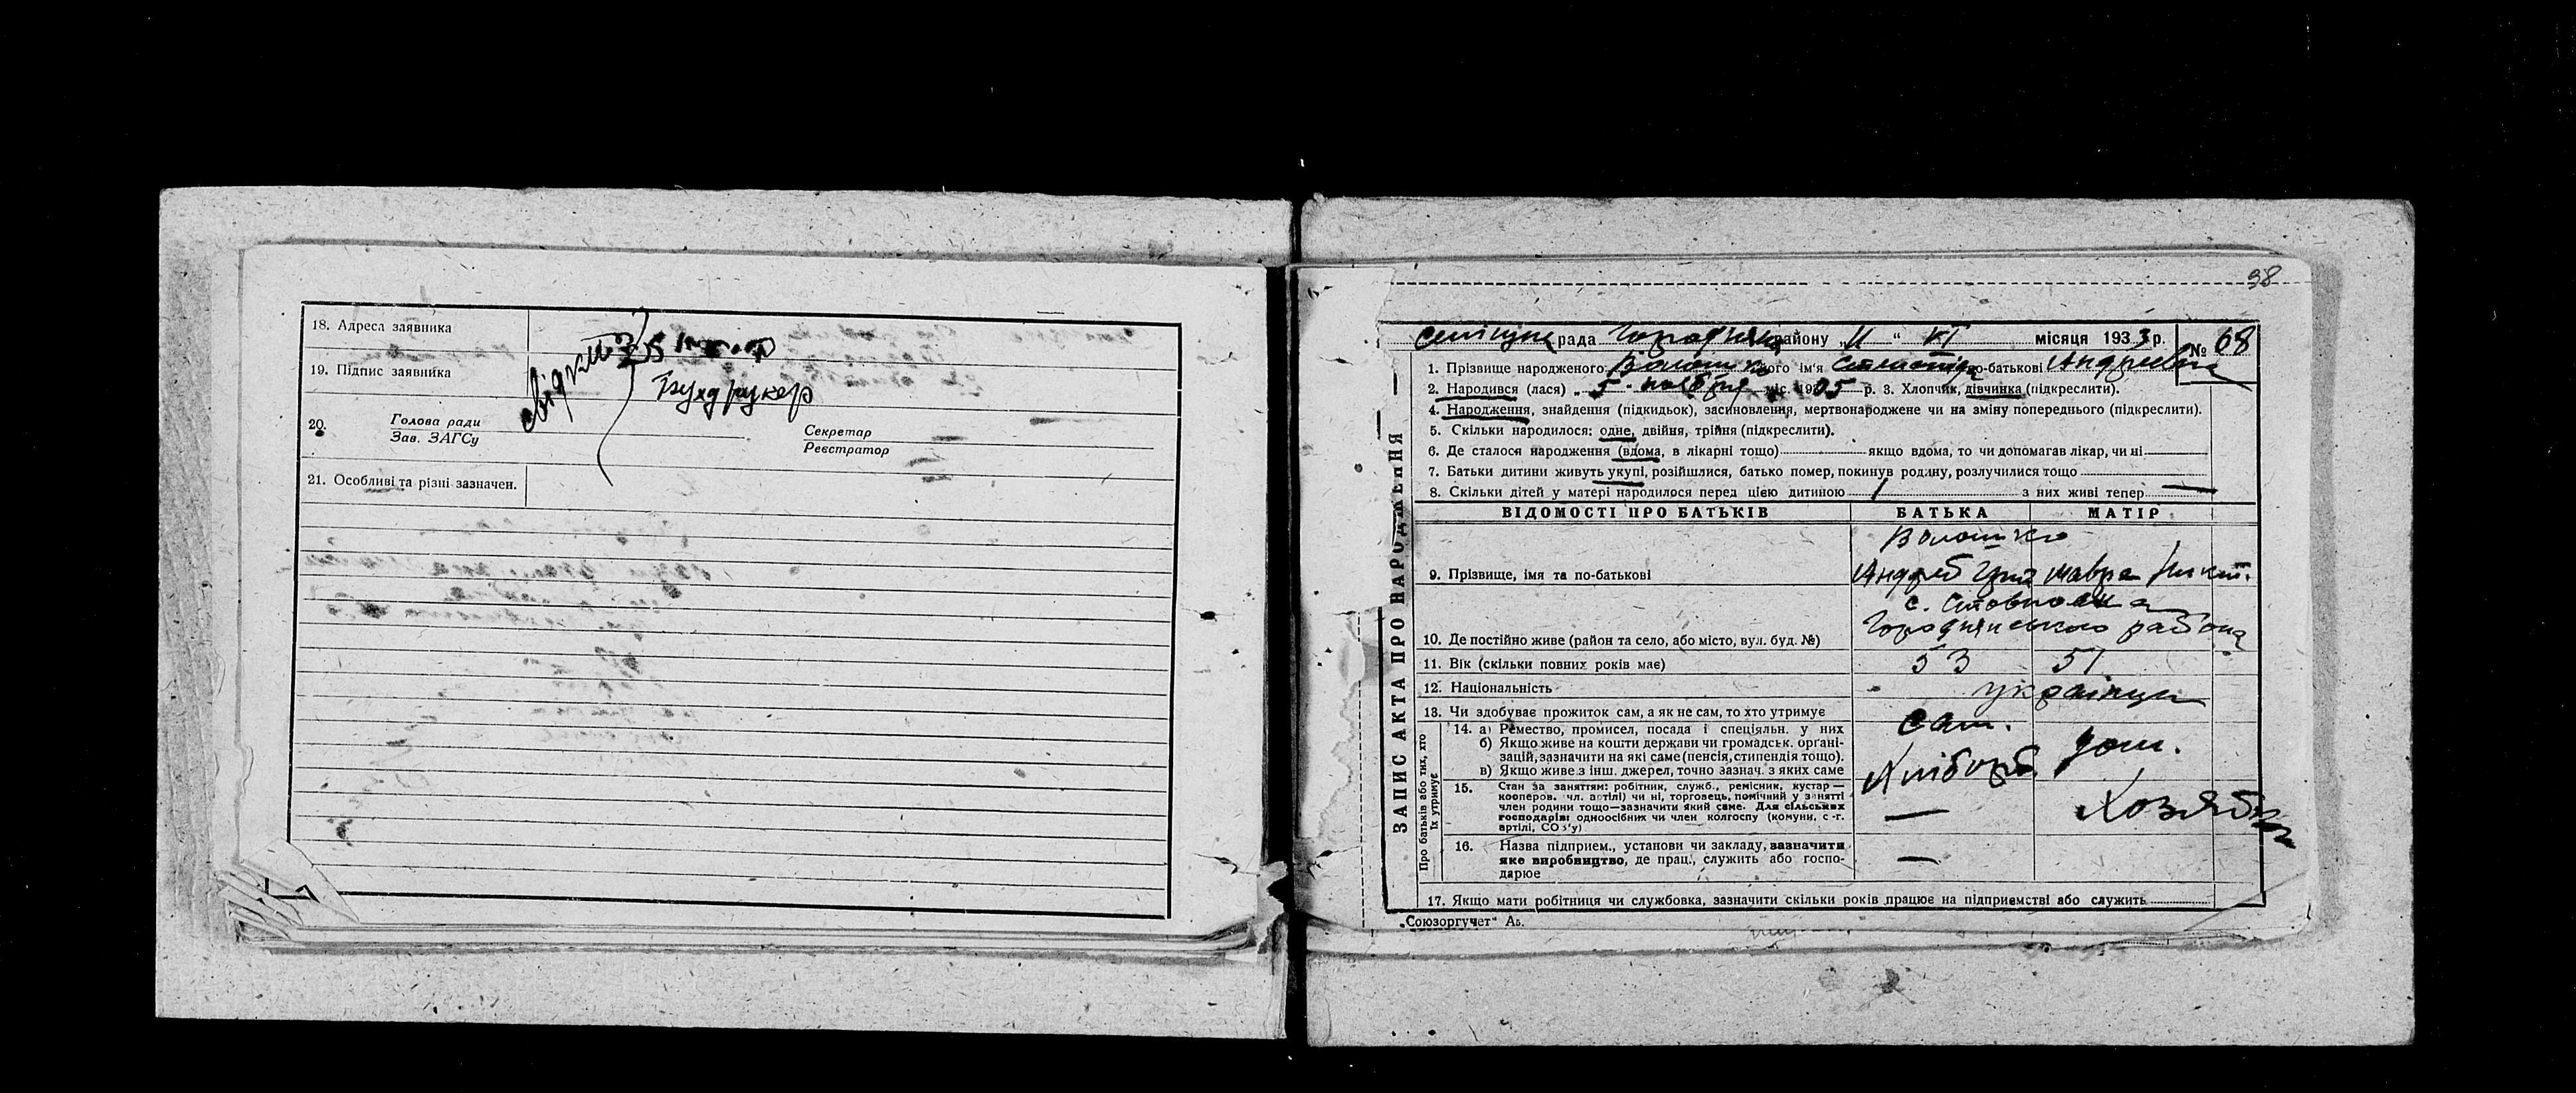 18. Адреса заявника
19. Підпис заявника
Бухдрукер
20. Голова ради
Зав. ЗАГСу
Секретар
Реєстратор
21. Особливі та різні зазначен.
38
рада району „ “ місяця 1933 р.
№ 68
ЗАПИС АКТА ПРО НАРОДЖЕННЯ
1. Прізвище народженого Волошко його ім'я по-батькові Андреевна
2. Народився (лася) „ 5 ноября міс. 1905 р. 3. Хлопчик, дівчинка (підкреслити).
4. Народження, знайдення (підкидьок), засиновлення, мертвонароджене чи на зміну попереднього (підкреслити).
5. Скільки народилося: одне, двійня, трійня (підкреслити).
6. Де сталося народження (вдома, в лікарні тощо) якщо вдома, то чи допомагав лікар, чи ні
7. Батьки дитини живуть укупі, розійшлися, батько помер, покинув родину, розлучилися тощо
8. Скільки дітей у матері народилося перед цією дитиною 1 з них живі тепер —
ВІДОМОСТІ ПРО БАТЬКІВ БАТЬКА МАТІР
Волошко
9. Прізвище, імя та по-батькові Андрей Мавра
с.
10. Де постійно живе (район та село, або місто, вул. буд. №) Городнянського района
11. Вік (скільки повних років має) 53 51
12. Національність українци
13. Чи здобуває прожиток сам, а як не сам, то хто утримує сам.
Про батьків або тих, хто їх утримує
14. а) Ремество, промисел, посада і спеціяльн. у них
б) Якщо живе на кошти держави чи громадськ. органі-
зацій, зазначити на які саме (пенсія, стипендія тощо). дом.
в) Якщо живе з інш. джерел, точно зазнач. з яких саме Хлібороб
15. Стан за заняттям: робітник, служб., ремісник, кустар —
кооперов. чл. артілі) чи ні, торговець, помічний у занятті
член родини тощо—зазначити який саме. Для сільських
господарів: одноосібних чи член колгоспу (комуни, с.-г.
артілі, СОЗ'у) —
16. Назва підприєм., установи чи закладу, зазначити
яке виробництво, де прац., служить або госпо- —
дарює
17. Якщо мати робітниця чи службовка, зазначити скільки років працює на підприємстві або служить
„Союзоргучет“